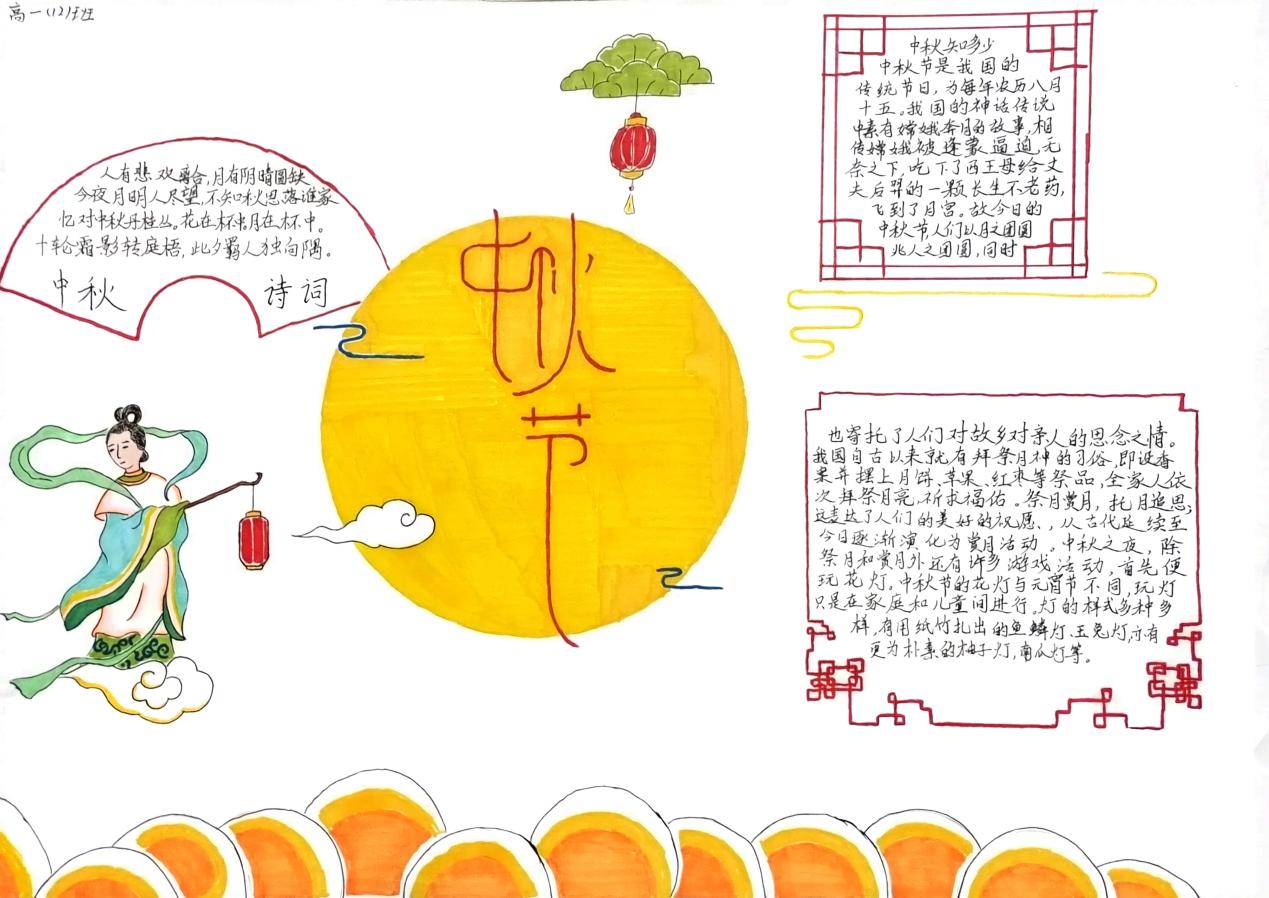 高一(12)班
人有悲欢离合,月有阴晴圆缺
今夜月明人尽望,不知秋思落谁家
忆对中秋丹桂丛。花在杯中,月在杯中。
十轮霜影转庭梧,此夕羁人独向隅。
中秋 诗词
中秋
节
中秋知多少
中秋节是我国的
传统节日,为每年农历八月
十五。我国的神话传说
中素有嫦娥奔月的故事,相
传嫦娥被逢蒙逼迫,无
奈之下,吃下了西王母给丈
夫后羿的一颗长生不老药,
飞到了月宫。故今日的
中秋节人们以月之团圆
兆人之团圆,同时
也寄托了人们对故乡对亲人的思念之情。
我国自古以来就有拜祭月神的习俗,即设香
案并摆上月饼、苹果、红枣等祭品,全家人依
次拜祭月亮,祈求福佑。祭月赏月,托月追思,
这表达了人们的美好的祝愿、,从古代延续至
今日逐渐演化为赏月活动。中秋之夜,除
祭月和赏月外还有许多游戏活动,首先便
玩花灯。中秋节的花灯与元宵节不同,玩灯
只是在家庭和儿童间进行。灯的样式多种多
样,有用纸竹扎出的鱼鳞灯、玉兔灯,亦有
更为朴素的柚子灯,南瓜灯等。